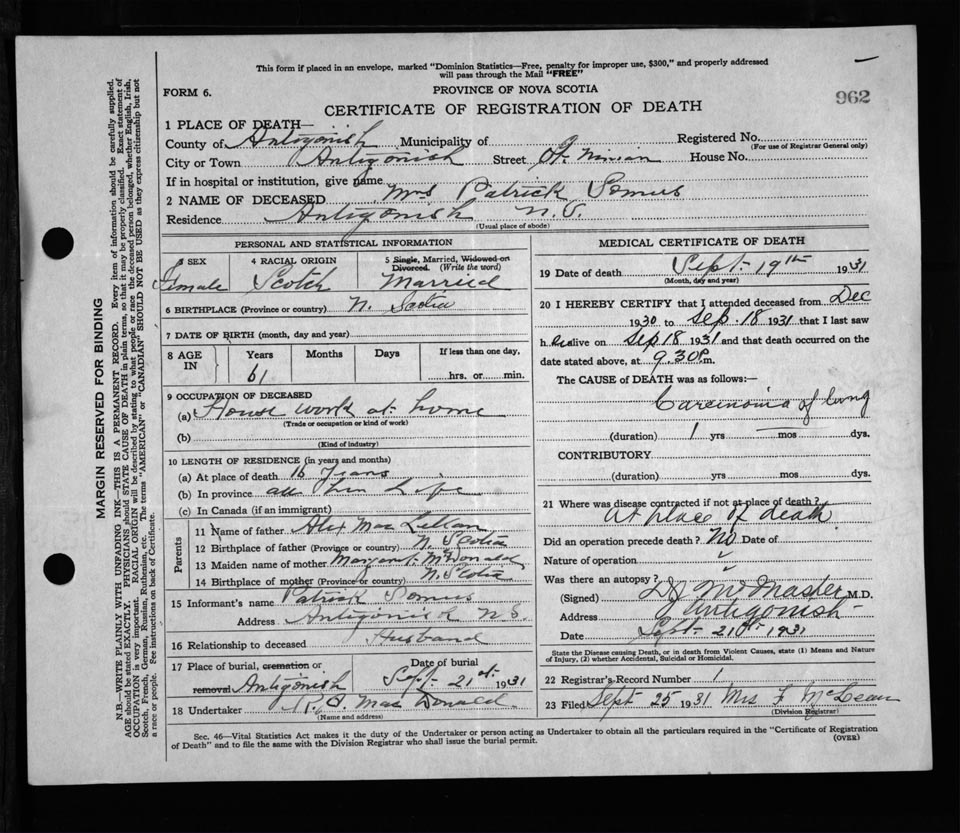 This form if placed in an envelope, marked "Dominion Statistics—Free, penalty for improper use, $300," and properly addressed
will pass through the Mail "FREE"
FORM 6.
PROVINCE OF NOVA SCOTIA
962
CERTIFICATE OF REGISTRATION OF DEATH
1 PLACE OF DEATH—
County of Antigonish Municipality of Registered No.
(For use of Registrar General only)
City or Town Antigonish Street St. Ninian House No.
If in hospital or institution, give name
2 NAME OF DECEASED Mrs Patrick Somers
Residence Antigonish N.S.
(Usual place of abode)
PERSONAL AND STATISTICAL INFORMATION
3 SEX 4 RACIAL ORIGIN 5 Single, Married, Widowed or
Divorced. (Write the word)
Female Scotch Married
6 BIRTHPLACE (Province or country) N. Scotia
7 DATE OF BIRTH (month, day and year)
8 AGE IN Years Months Days If less than one day,
61 hrs. or min.
9 OCCUPATION OF DECEASED
(a) House work at home
(Trade or occupation or kind of work)
(b)
(Kind of industry)
10 LENGTH OF RESIDENCE (in years and months)
(a) At place of death 16 years
(b) In province all her life
(c) In Canada (if an immigrant)
Parents
11 Name of father Alex Mac Lellan
12 Birthplace of father (Province or country) N. Scotia
13 Maiden name of mother Margaret McDonald
14 Birthplace of mother (Province or country) N. Scotia
15 Informant's name Patrick Somers
Address Antigonish N.S.
16 Relationship to deceased Husband
17 Place of burial, cremation or Date of burial
removal Antigonish Sept. 21st. 1931
18 Undertaker Mac Donald.
(Name and address)
MEDICAL CERTIFICATE OF DEATH
19 Date of death Sept 19th 1931
(Month, day and year)
20 I HEREBY CERTIFY that I attended deceased from Dec
1930 to Sep. 18 1931 that I last saw
h er alive on Sep 18 1931 and that death occurred on the
date stated above, at 9.30 P.m.
The CAUSE of DEATH was as follows:—
Carcinoma of lung
(duration) 1 yrs — mos dys.
CONTRIBUTORY
(duration) yrs mos dys.
21 Where was disease contracted if not at place of death?
At place of death
Did an operation precede death? No Date of
Nature of operation
Was there an autopsy?
(Signed) M.D.
Address Antigonish
Date Sept 21st 1931
State the Disease causing Death, or in death from Violent Causes, state (1) Means and Nature
of Injury, (2) whether Accidental, Suicidal or Homicidal.
22 Registrar's Record Number 1
23 Filed Sept 25 1931 Mrs F McLean
(Division Registrar)
Sec. 46—Vital Statistics Act makes it the duty of the Undertaker or person acting as Undertaker to obtain all the particulars required in the "Certificate of Registration
of Death" and to file the same with the Division Registrar who shall issue the burial permit.
(OVER)
MARGIN RESERVED FOR BINDING
N.B.—WRITE PLAINLY WITH UNFADING INK—THIS IS A PERMANENT RECORD. Every item of information should be carefully supplied.
AGE should be stated EXACTLY. PHYSICIANS should STATE CAUSE OF DEATH in plain terms, so that it may be properly classified. Exact statement of
OCCUPATION is very important. RACIAL ORIGIN will be described by stating to what people or race the deceased person belonged, whether English, Irish,
Scotch, French, German, Russian, Ruthenian, etc. The terms "AMERICAN" or "CANADIAN" SHOULD NOT BE USED as they express citizenship but not
a race or people. See instructions on back of Certificate.